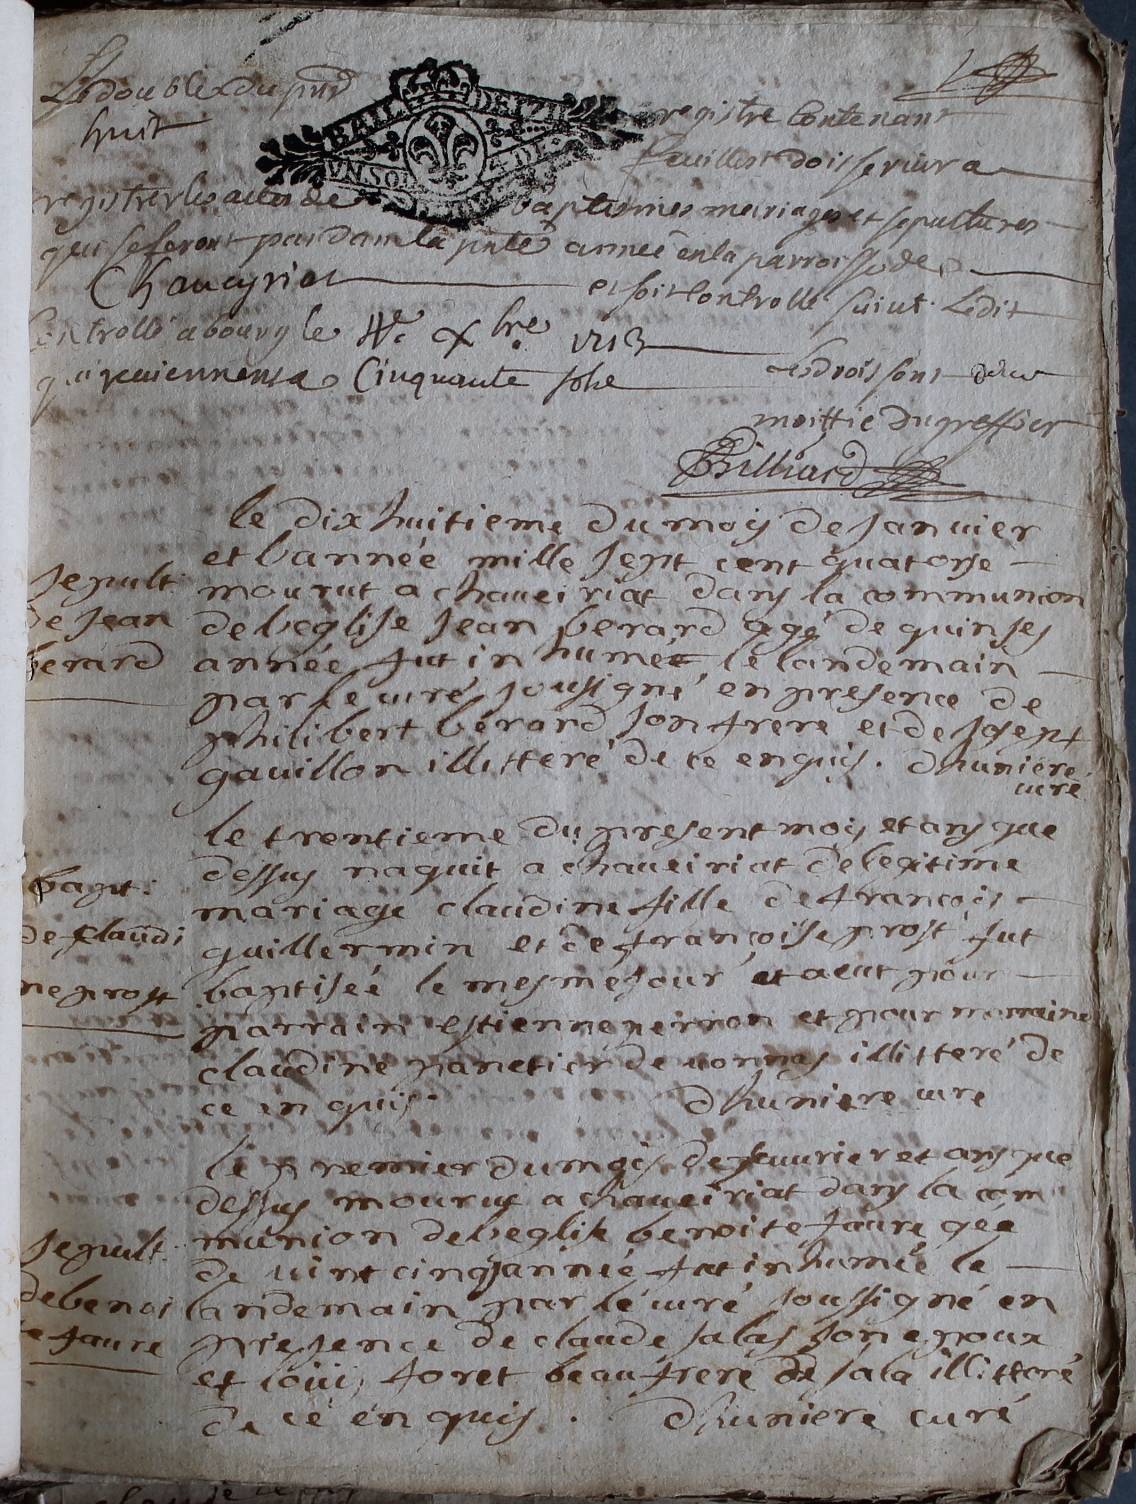 Le double du pnt registre Contenant
huit feuillets dois servir a
registrer les actes de baptesmes mariages et sepultures
qui se feront pandam la pnte année en la parroisse de
Chaveyriat et soit Controllé suiut Ledit
Controllé a bourg le 4e xbre 1713
Cinquante sols les droits sont
moittie du greffier
Billiard
GENER DE
UN SOL DE
le dix huitieme du moy de Janvier
et l'année mille sept cent quatorse
mourut a chaveiriat dans la communion
de l'eglise Jean berard agé de quinses
année fut inhumée le landemain
par le curé sousigné en presence de
philibert berard son frere et de Josept
gavillon illitteré de ce enquis. dhuniere
curé
sepult
de Jean
berard
le trentieme du present mois et ans que
dessus naquit a chaveiriat de legitime
mariage claudine fille de françois
guillermin et de françoise prost fut
baptiséé le mesme jour et a eut pour
parrain estienne perron et pour maraine
claudine panetier de vonnas illitteré de
ce enquis. dhuniere curé
bapt:
de claudi
ne prost
le premier du mois de feuurier et ans que
dessus mourut a chaveiriat dans la com
munion de l'eglise benoite faure gée
de vint cinq année fut inhumée le
landemain par le curé soussigné en
presence de claude salas son epoux
et louis foret beaufrere de sala illitteré
de ce enquis. dhuniere curé
sepult.
de benoi
te faure